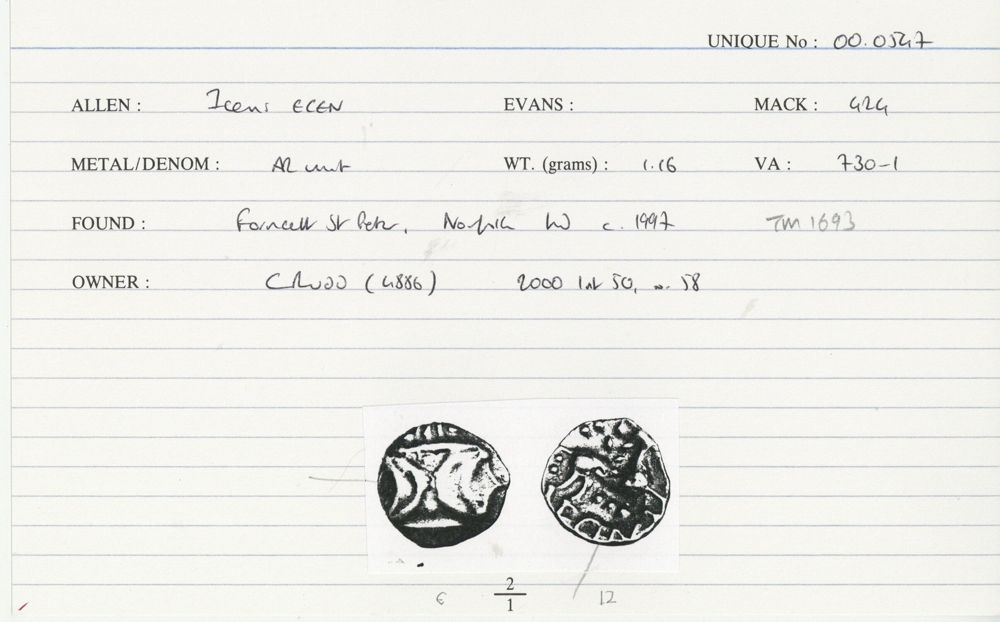 UNIQUE No : 00.0547
ALLEN : Iceni ECEN EVANS : MACK : 424
METAL/DENOM : AR unit WT. (grams) : 1.16 VA : 730-1
FOUND : Forncett St Peter, Norfolk c. 1997 TM 1693
OWNER : CRUDD (4886) 2000 list 50, no. 58
6 2/1 12